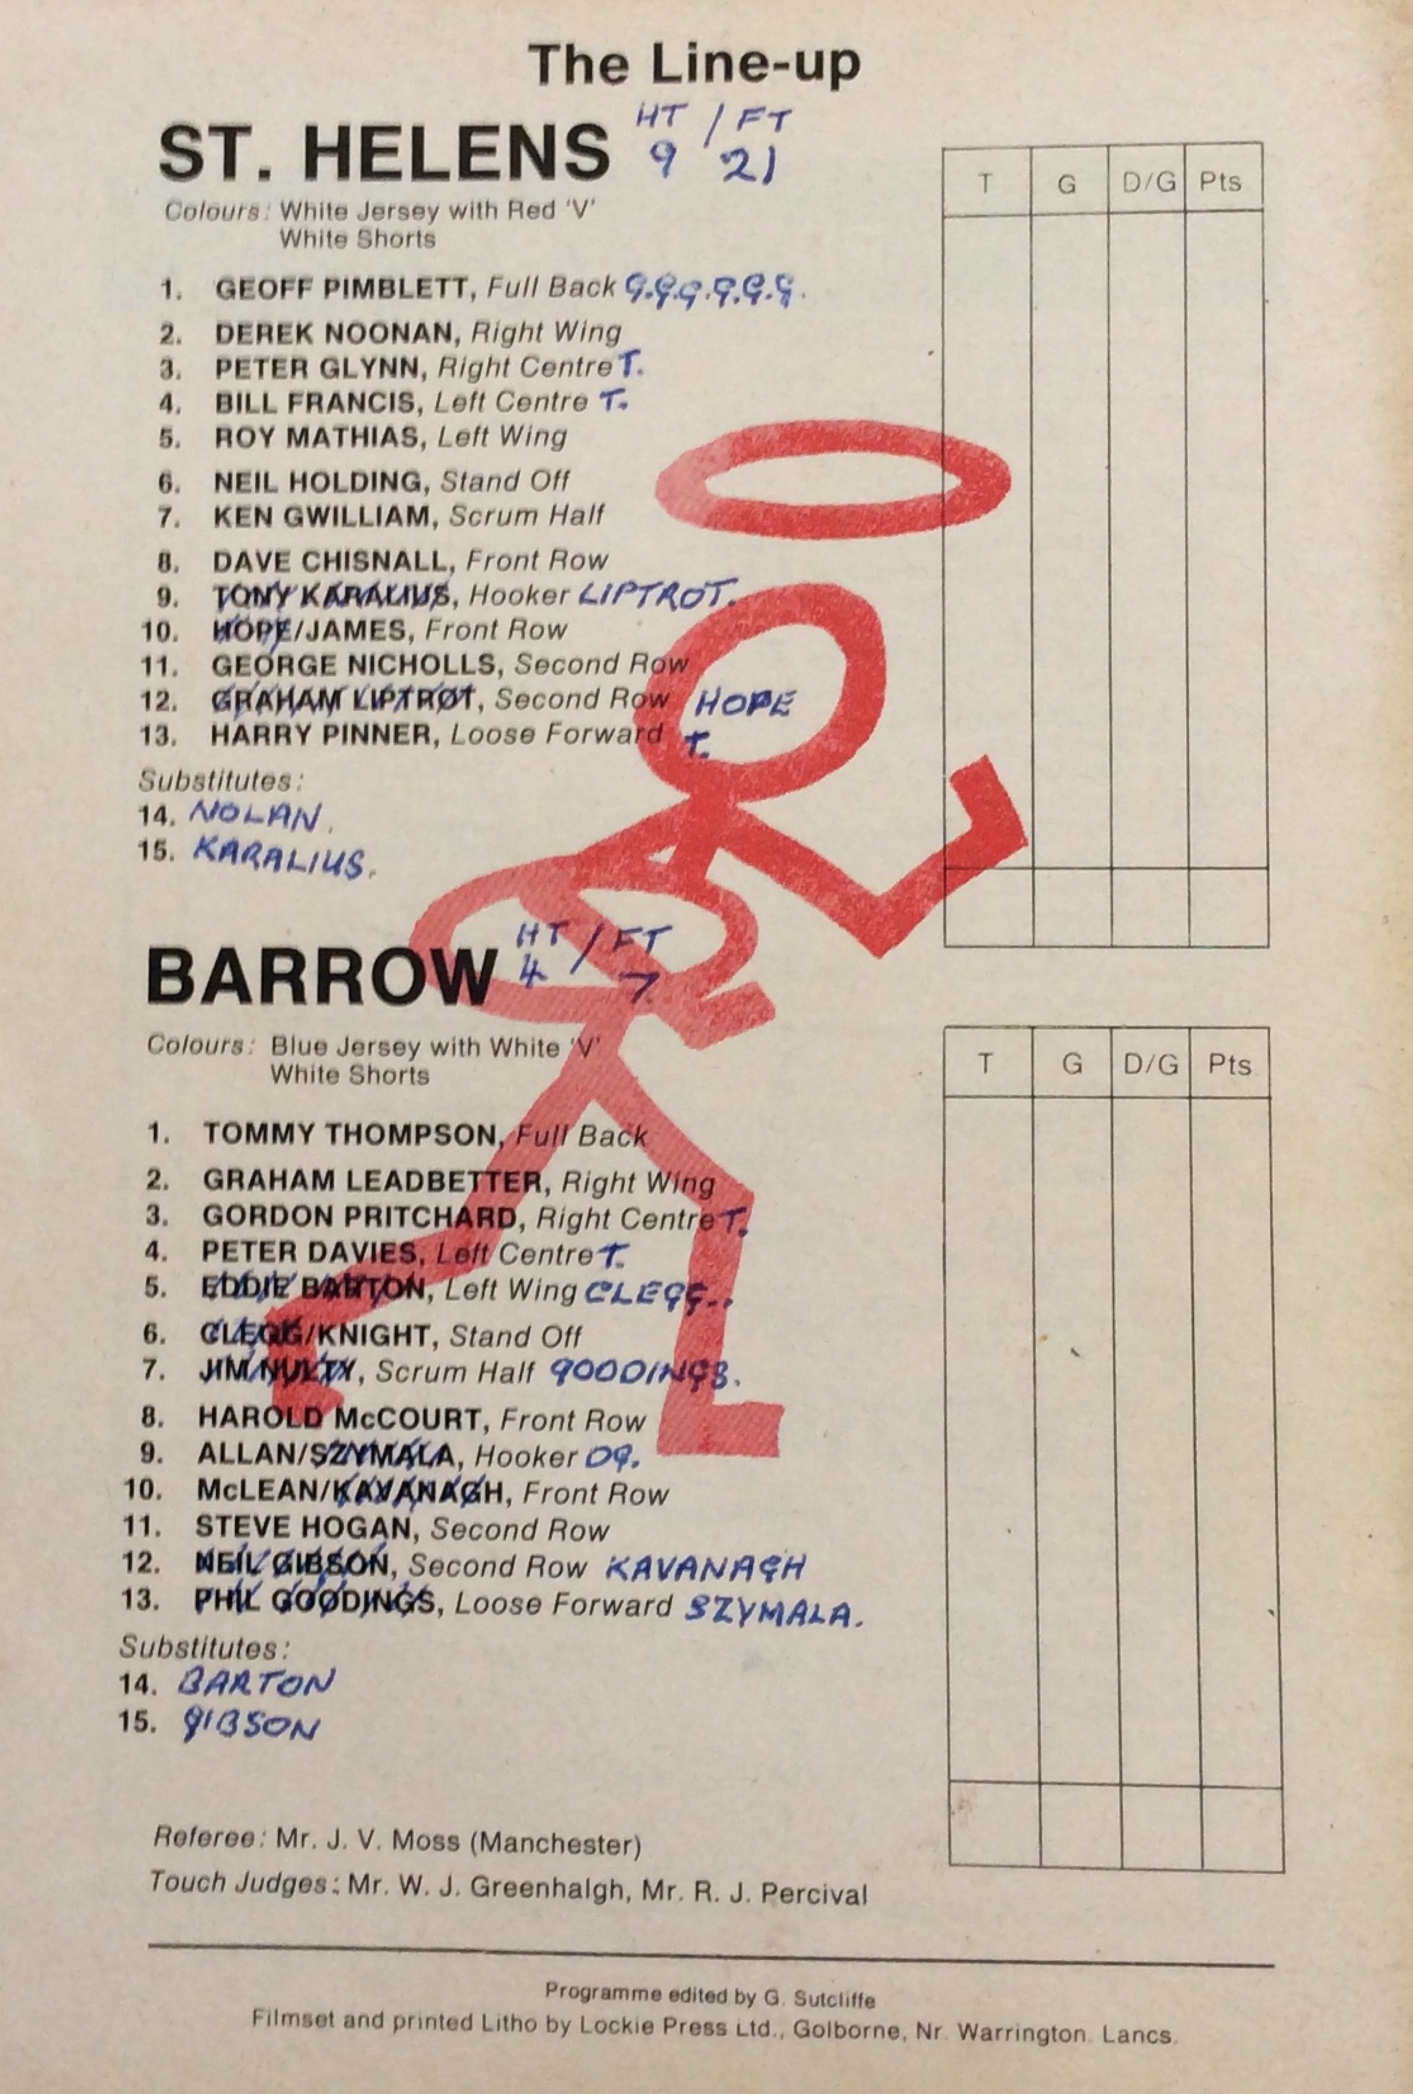 The Line-up
ST. HELENS HT / FT
9 21
T G D/G Pts
Colours: White Jersey with Red 'V'
White Shorts
1. GEOFF PIMBLETT, Full Back G.G.G.G.G.G.
2. DEREK NOONAN, Right Wing
3. PETER GLYNN, Right Centre T.
4. BILL FRANCIS, Left Centre T.
5. ROY MATHIAS, Left Wing
6. NEIL HOLDING, Stand Off
7. KEN GWILLIAM, Scrum Half
8. DAVE CHISNALL, Front Row
9. TONY KARALIUS, Hooker LIPTROT.
10. HOPE/JAMES, Front Row
11. GEORGE NICHOLLS, Second Row
12. GRAHAM LIPTROT, Second Row HOPE
13. HARRY PINNER, Loose Forward T.
Substitutes:
14. NOLAN.
15. KARALIUS.
BARROW HT / FT
4 7
Colours: Blue Jersey with White 'V'
White Shorts
T G D/G Pts
1. TOMMY THOMPSON, Full Back
2. GRAHAM LEADBETTER, Right Wing
3. GORDON PRITCHARD, Right Centre T.
4. PETER DAVIES, Left Centre T.
5. EDDIE BARTON, Left Wing CLEGG..
6. CLEGG/KNIGHT, Stand Off
7. JIM NULTY, Scrum Half GOODINGS.
8. HAROLD McCOURT, Front Row
9. ALLAN/SZYMALA, Hooker DG.
10. McLEAN/KAVANAGH, Front Row
11. STEVE HOGAN, Second Row
12. NEIL GIBSON, Second Row KAVANAGH
13. PHIL GOODINGS, Loose Forward SZYMALA.
Substitutes:
14. BARTON
15. GIBSON
Referee: Mr. J. V. Moss (Manchester)
Touch Judges: Mr. W. J. Greenhalgh, Mr. R. J. Percival
Programme edited by G. Sutcliffe
Filmset and printed Litho by Lockie Press Ltd., Golborne, Nr. Warrington. Lancs.